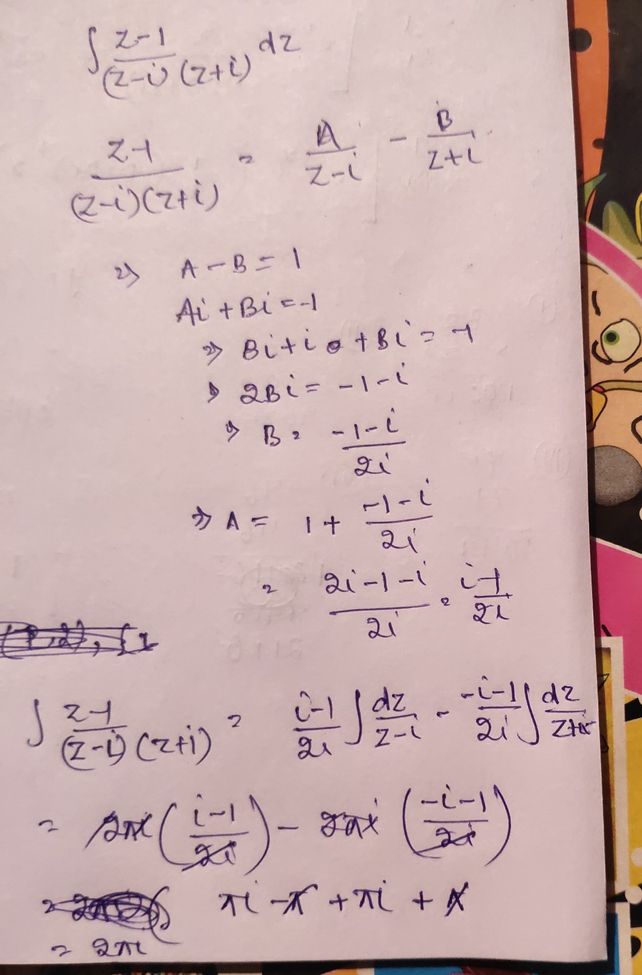 ∫ z-1 / (z-i)(z+i) dz
z-1 / (z-i)(z+i) = A / z-i - B / z+i
⇒ A - B = 1
Ai + Bi = -1
⇒ Bi + i + Bi = -1
⇒ 2Bi = -1-i
⇒ B = -1-i / 2i
⇒ A = 1 + -1-i / 2i
= 2i-1-i / 2i = i-1 / 2i
∫ z-1 / (z-i)(z+i) = i-1 / 2i ∫ dz / z-i - -i-1 / 2i ∫ dz / z+i
= 2πi ( i-1 / 2i ) - 2πi ( -i-1 / 2i )
= πi - π + πi + π
= 2πi